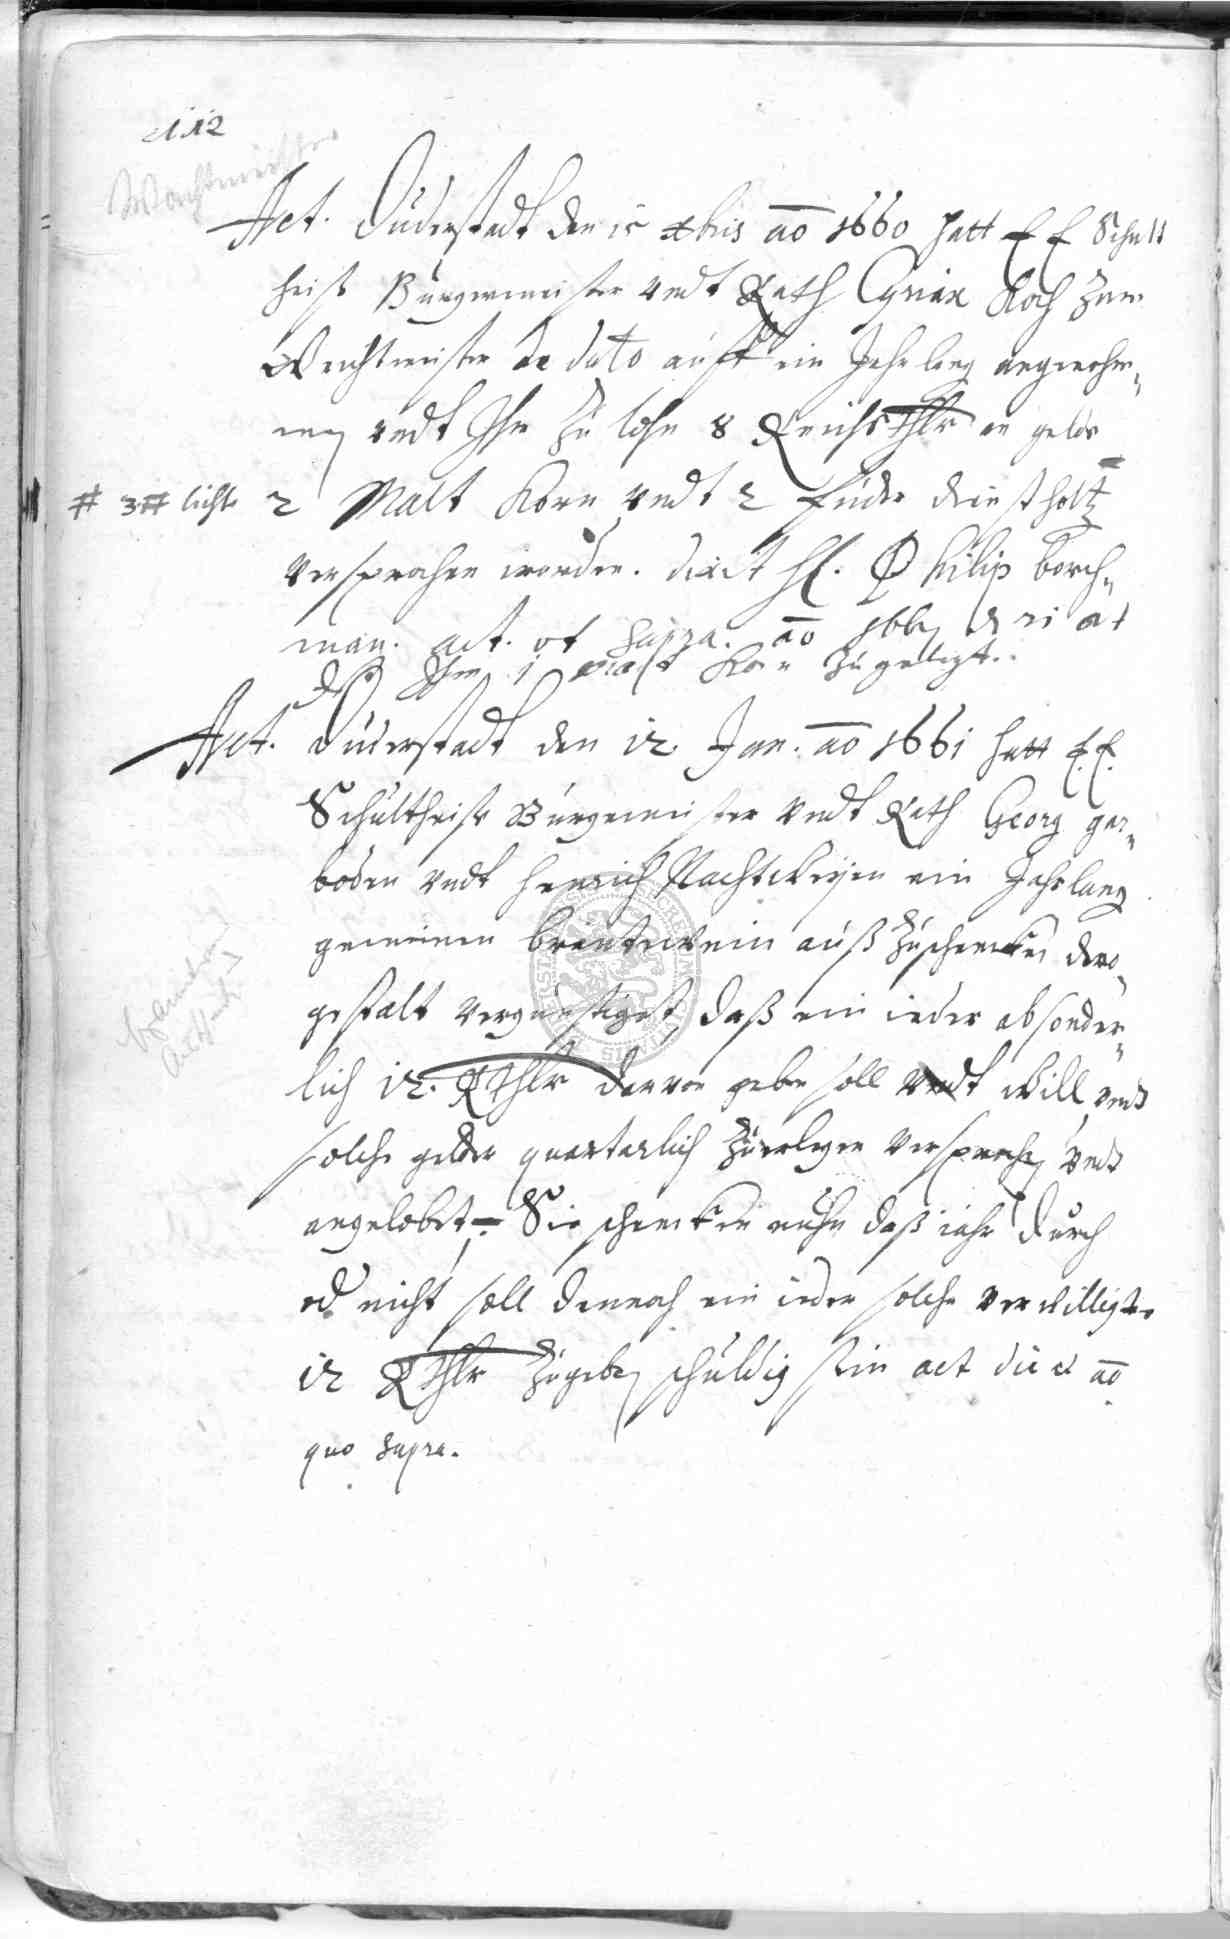 112
Wachtmeister
Act. Duderstadt den 15 xbris ao 1660 hatt E E Schult
heiß Bürgermeister vndt Rath Cyriax Koch zum
Wachtmeister de dato auff ein Jahr lang angenohm„
men vndt Ihm zu lohn 8 Reichsthlr an gelde
# 3 # licht 2 Malt Korn vndt 2 fuder dienstholtz
versprochen worden. dixit H. Philip borch„
man. act. ut supra. ao 166
Ihm 1 malt Korn zugelegt.
Act. Duderstadt den 12. Jan. ao 1661 hatt E. E.
Schultheiß Bürgermeister vndt Rath Georg ger„
boden vndt Henrich Nachtweyen ein Jahrlang
gemeinen brantewein auß zuschencken dero„
gestalt vergünstiget, daß ein ieder absonder„
lich 12. Rthlr darvon geben soll vndt will vndt
solche gelder quartarlich zuerlegen versprochen vndt
angelobet. Sie schencken nuhn daß iahr durch
od nicht soll dennoch ein ieder solche verwilligte
12 Rthlr zugeben schuldig sein act die et ao
quo supra.